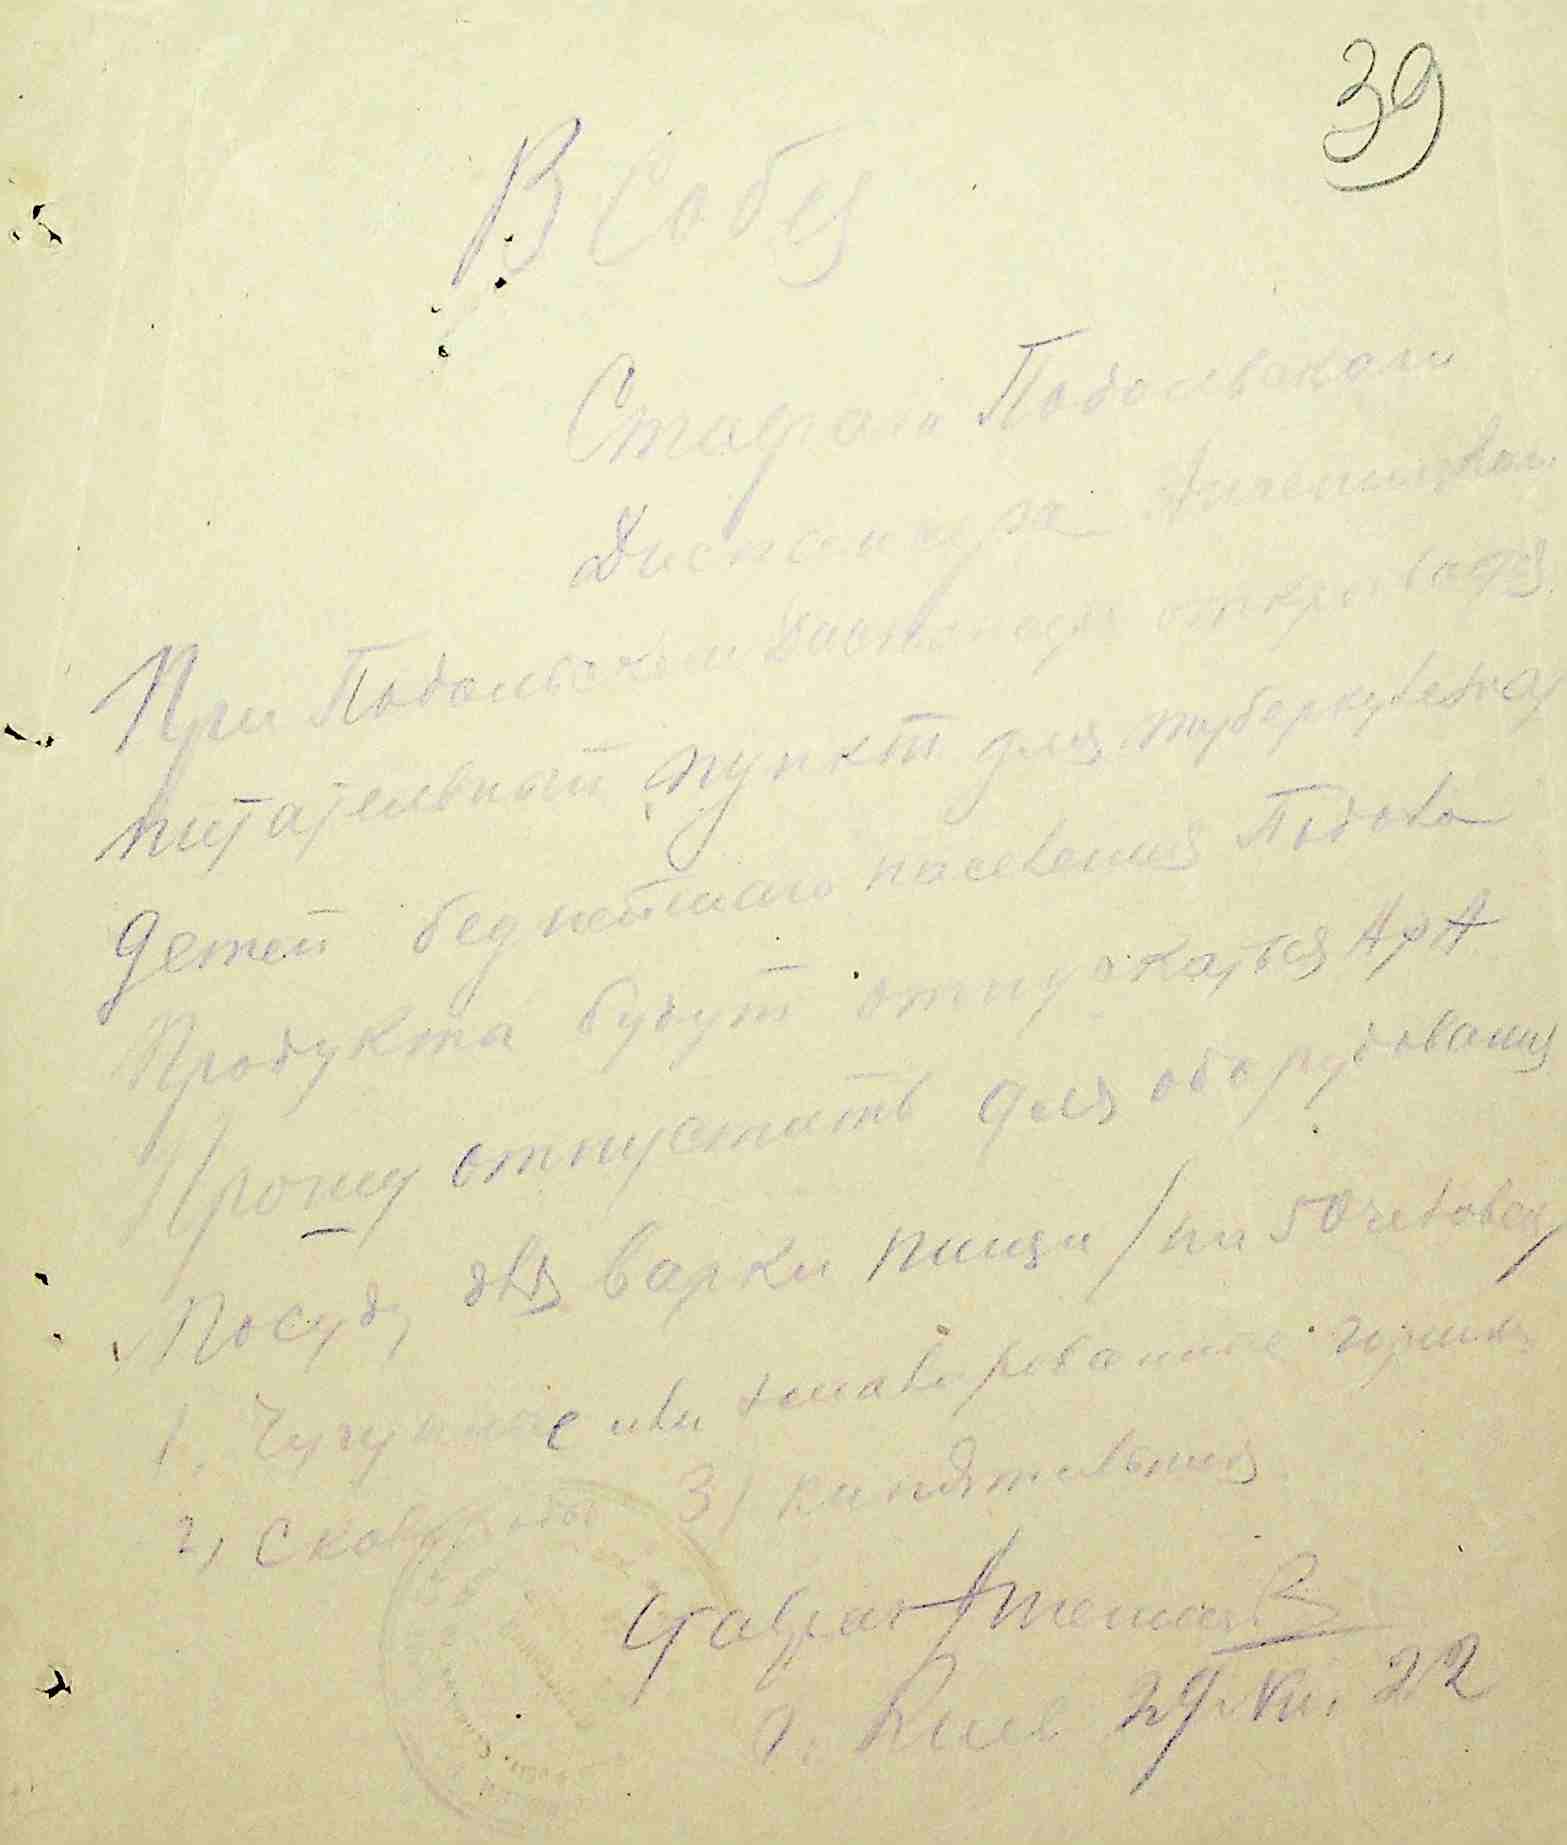 39
В Собез
Подольскаго
Диспансера
При Подольском Диспансере открывается
питательный пункт для туберкулезных
детей беднейшаго населения Подола
Продукта будут отпускаться АРА
Прошу отпустить для оборудования
Посуду для варки пищи / на 50 человек
1. Чугунные или эмалированные горшки
2, Сковороды 3) кипятильник
г. Киев 29 22